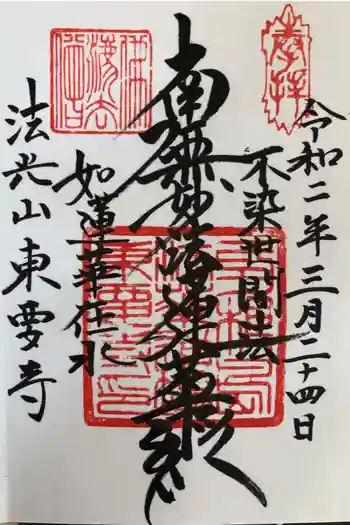 奉拝
令和二年三月二十四日
不染世間法
南無妙法蓮華経
如蓮華在水
法光山東要寺